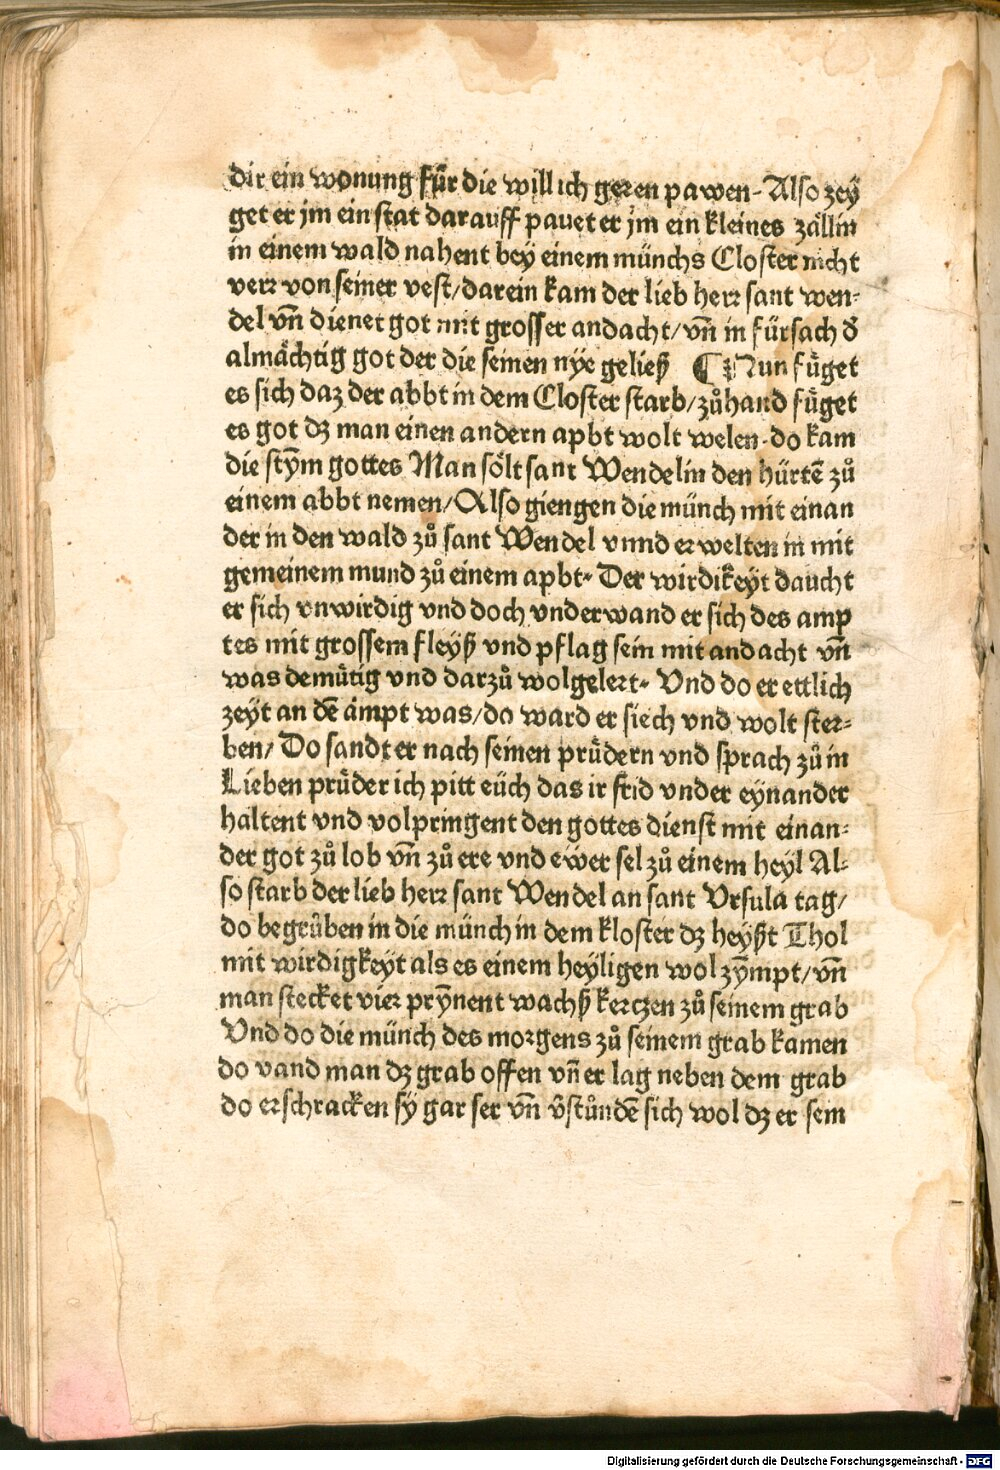 dir ein wonung für die will ich geren pawen. Also zeÿ
get er jm ein stat darauff pauet er jm ein kleines zällin
in einem wald nahent bey einem münchs Closter nicht
verꝛ von seiner vest/ darein kam der lieb herꝛ sant wen⸗
del vñ dienet got mit grosser andacht/ vñ in fürsach d̕
almächtig got der die seinen nÿe geließ ¶ Nun füget
es sich daz der abbt in dem Closter starb/ zůhand füget
es got dz man einen andern apbt wolt welen. do kam
die stÿm gottes Man sölt sant Wendelin den hürtẽ zů
einem abbt nemen/ Also giengen die münch mit einan
der in den wald zů sant Wendel vnnd erwelten in mit
gemeinem mund zů einem apbt. Der wirdikeÿt daucht
er sich vnwirdig vnd doch vnderwand er sich des amp
tes mit grossem fleÿß vnd pflag sein mit andacht vñ
was demütig vnd darzů wolgelert. Vnd do er ettlich
zeÿt an dẽ ämpt was/ do ward er siech vnd wolt ster⸗
ben/ Do sandt er nach seinen prüdern vnd sprach zů in
Lieben prüder ich pitt eüch das ir frid vnder eÿnander
haltent vnd volpringent den gottes dienst mit einan⸗
der got zů lob vñ zů ere vnd ewer sel zů einem heÿl Al⸗
so starb der lieb herꝛ sant Wendel an sant Vrsula tag/
do begrůben in die münch in dem kloster dz heÿßt Thol
mit wirdigkeÿt als es einem heÿligen wol zÿmpt/ vñ
man stecket vier prÿnnent wachß kerczen zů seinem grab
Vnd do die münch des morgens zů seinem grab kamen
do vand man dz grab offen vñ er lag neben dem grab
do erschracken sÿ gar ser vñ v̕stůndẽ sich wol dz er sem
Digitalisierung gefördert durch die Deutsche Forschungsgemeinschaft - DFG